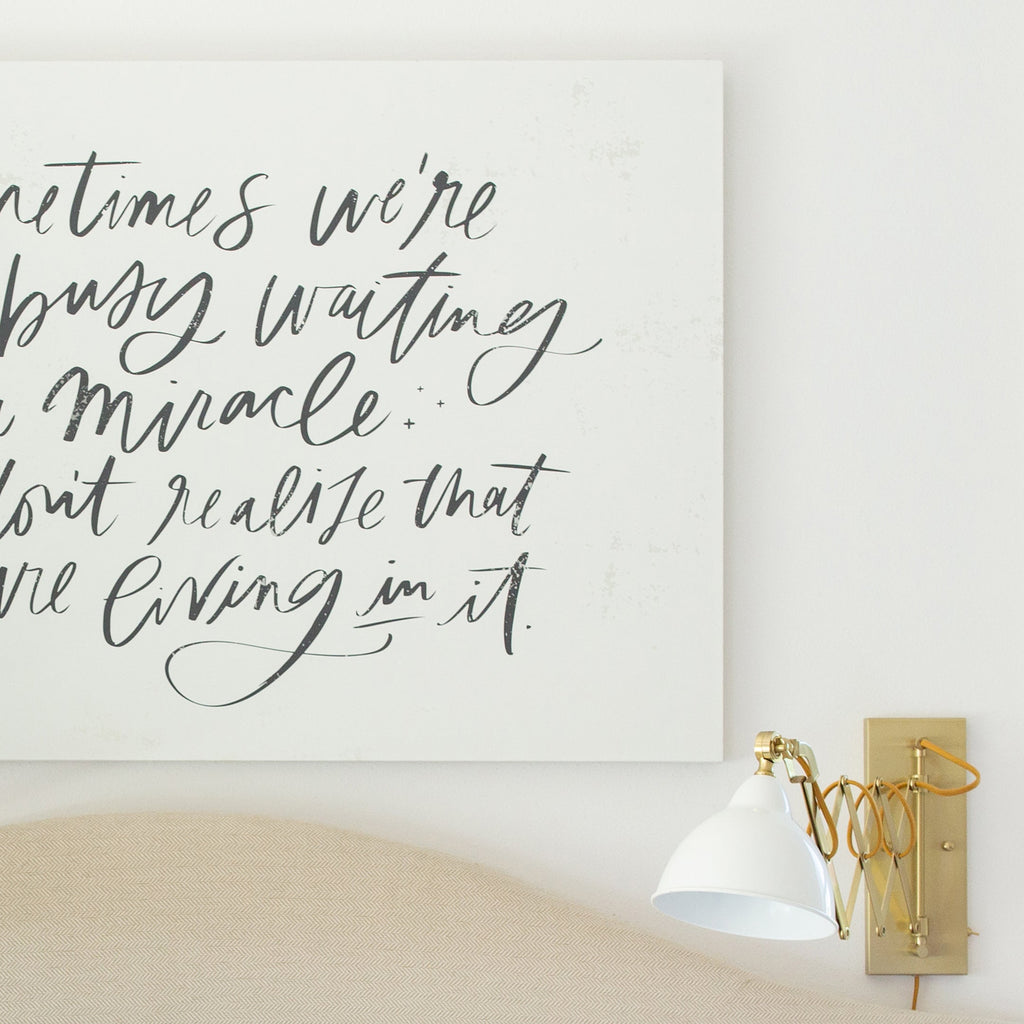 metimes we're
busy waiting
a miracle
don't realize that
are living in it.